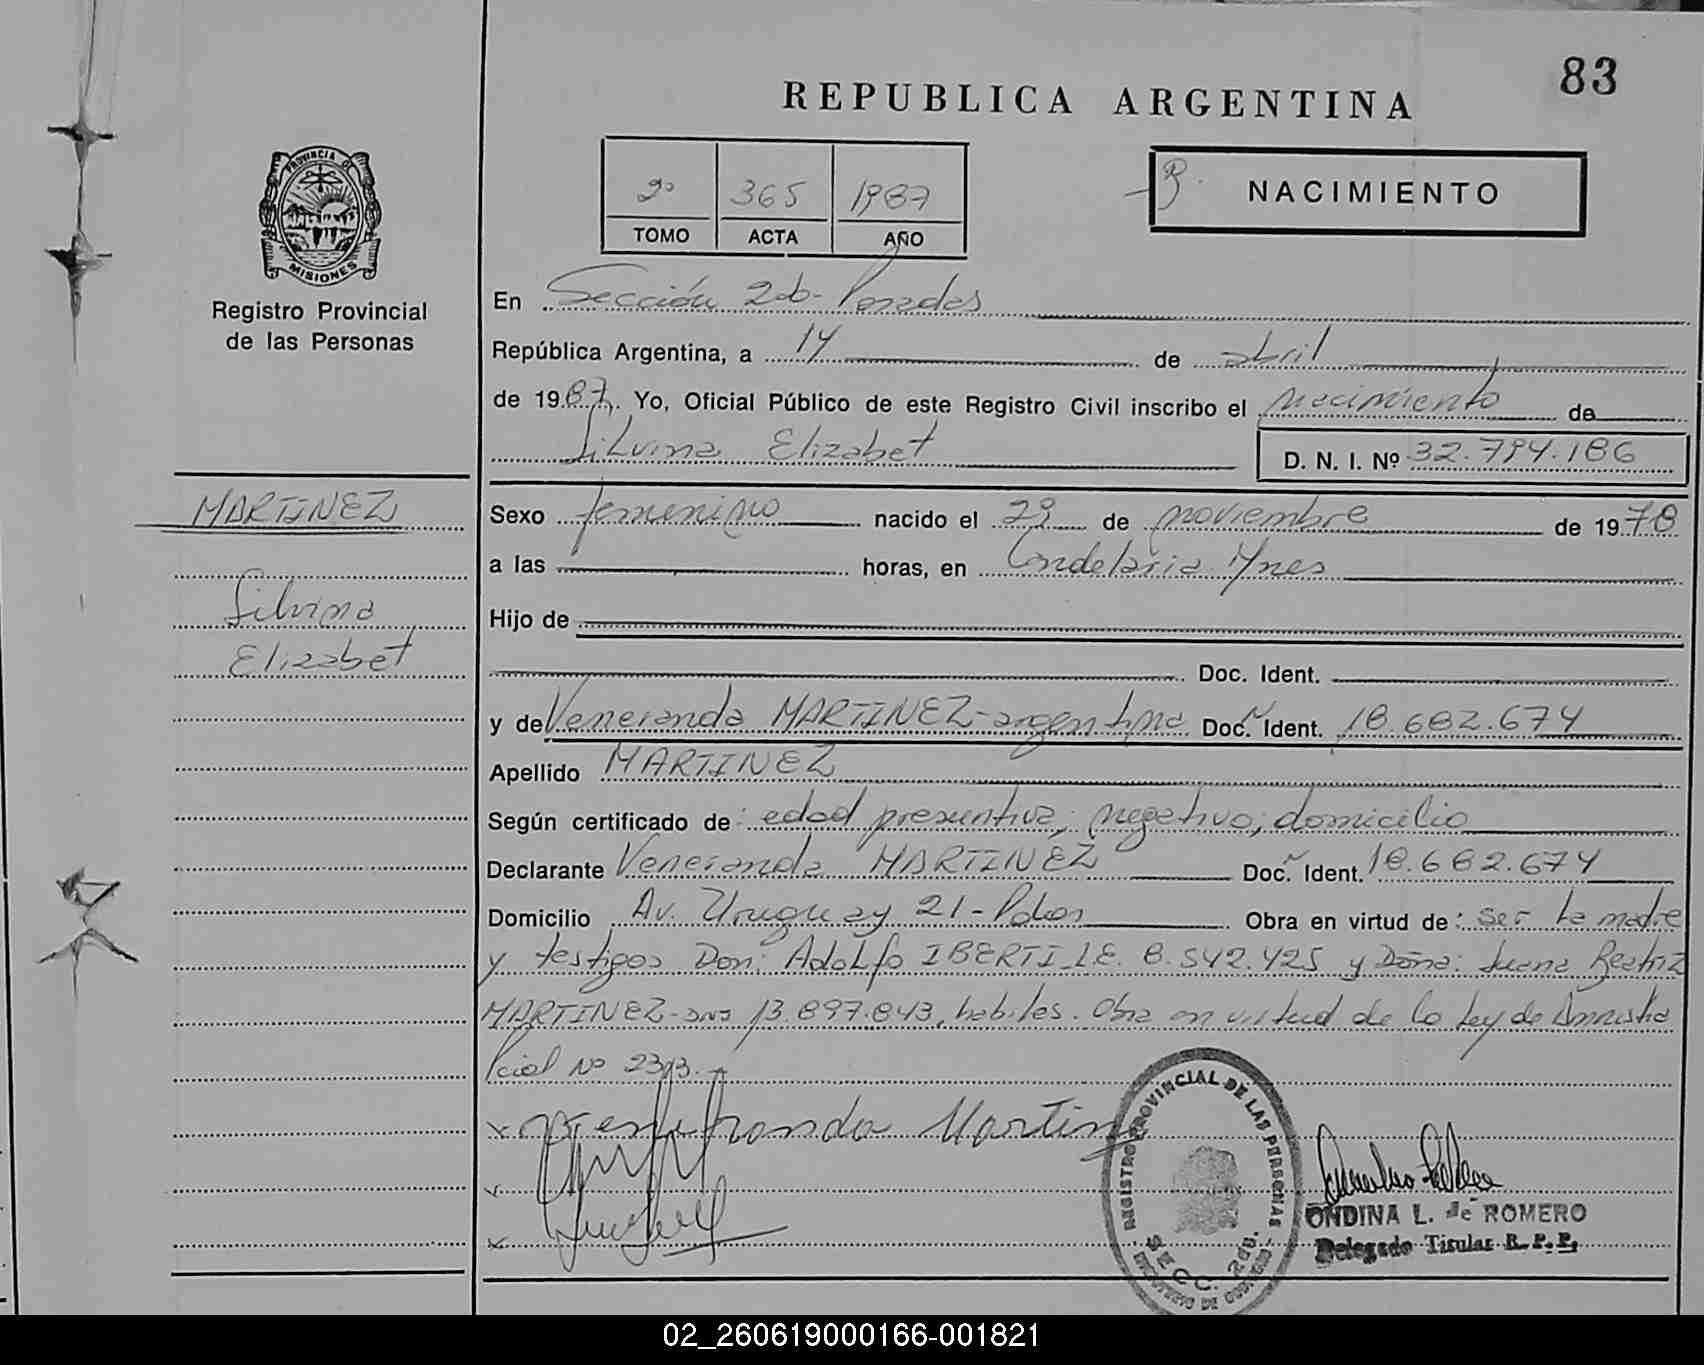 83
REPUBLICA ARGENTINA
2º 365 1987
TOMO ACTA AÑO
NACIMIENTO
PROVINCIA DE
MISIONES
Registro Provincial
de las Personas
En Sección 2da- Posadas
República Argentina, a 14 de abril
de 1987. Yo, Oficial Público de este Registro Civil inscribo el nacimiento de
Silvina Elizabet
D. N. I. Nº 32.794.186
MARTINEZ
Silvina
Elizabet
Sexo femenino nacido el 29 de noviembre de 1978
a las horas, en Candelaria Mnes
Hijo de
Doc. Ident.
y de Veneranda MARTINEZ-argentina Doc. Ident. 18.682.674
Apellido MARTINEZ
Según certificado de: edad presuntiva; negativo; domicilio
Declarante Veneranda MARTINEZ Doc. Ident. 18.682.674
Domicilio Av. Uruguay 21- Obra en virtud de: ser la madre
y testigos Don: Adolfo IBERTI L.E. 8.542.425 y Doña: Juana Beatriz
MARTINEZ- DNI 13.897.843, habiles. Obra en virtud de la Ley de Amnistia
Pcial Nº
Veneranda Martinez
REGISTRO PROVINCIAL DE LAS PERSONAS
SECC. 2da.
MINISTERIO DE GOBIERNO
ONDINA L. de ROMERO
Delegado Titular R. P. P.
02_260619000166-001821